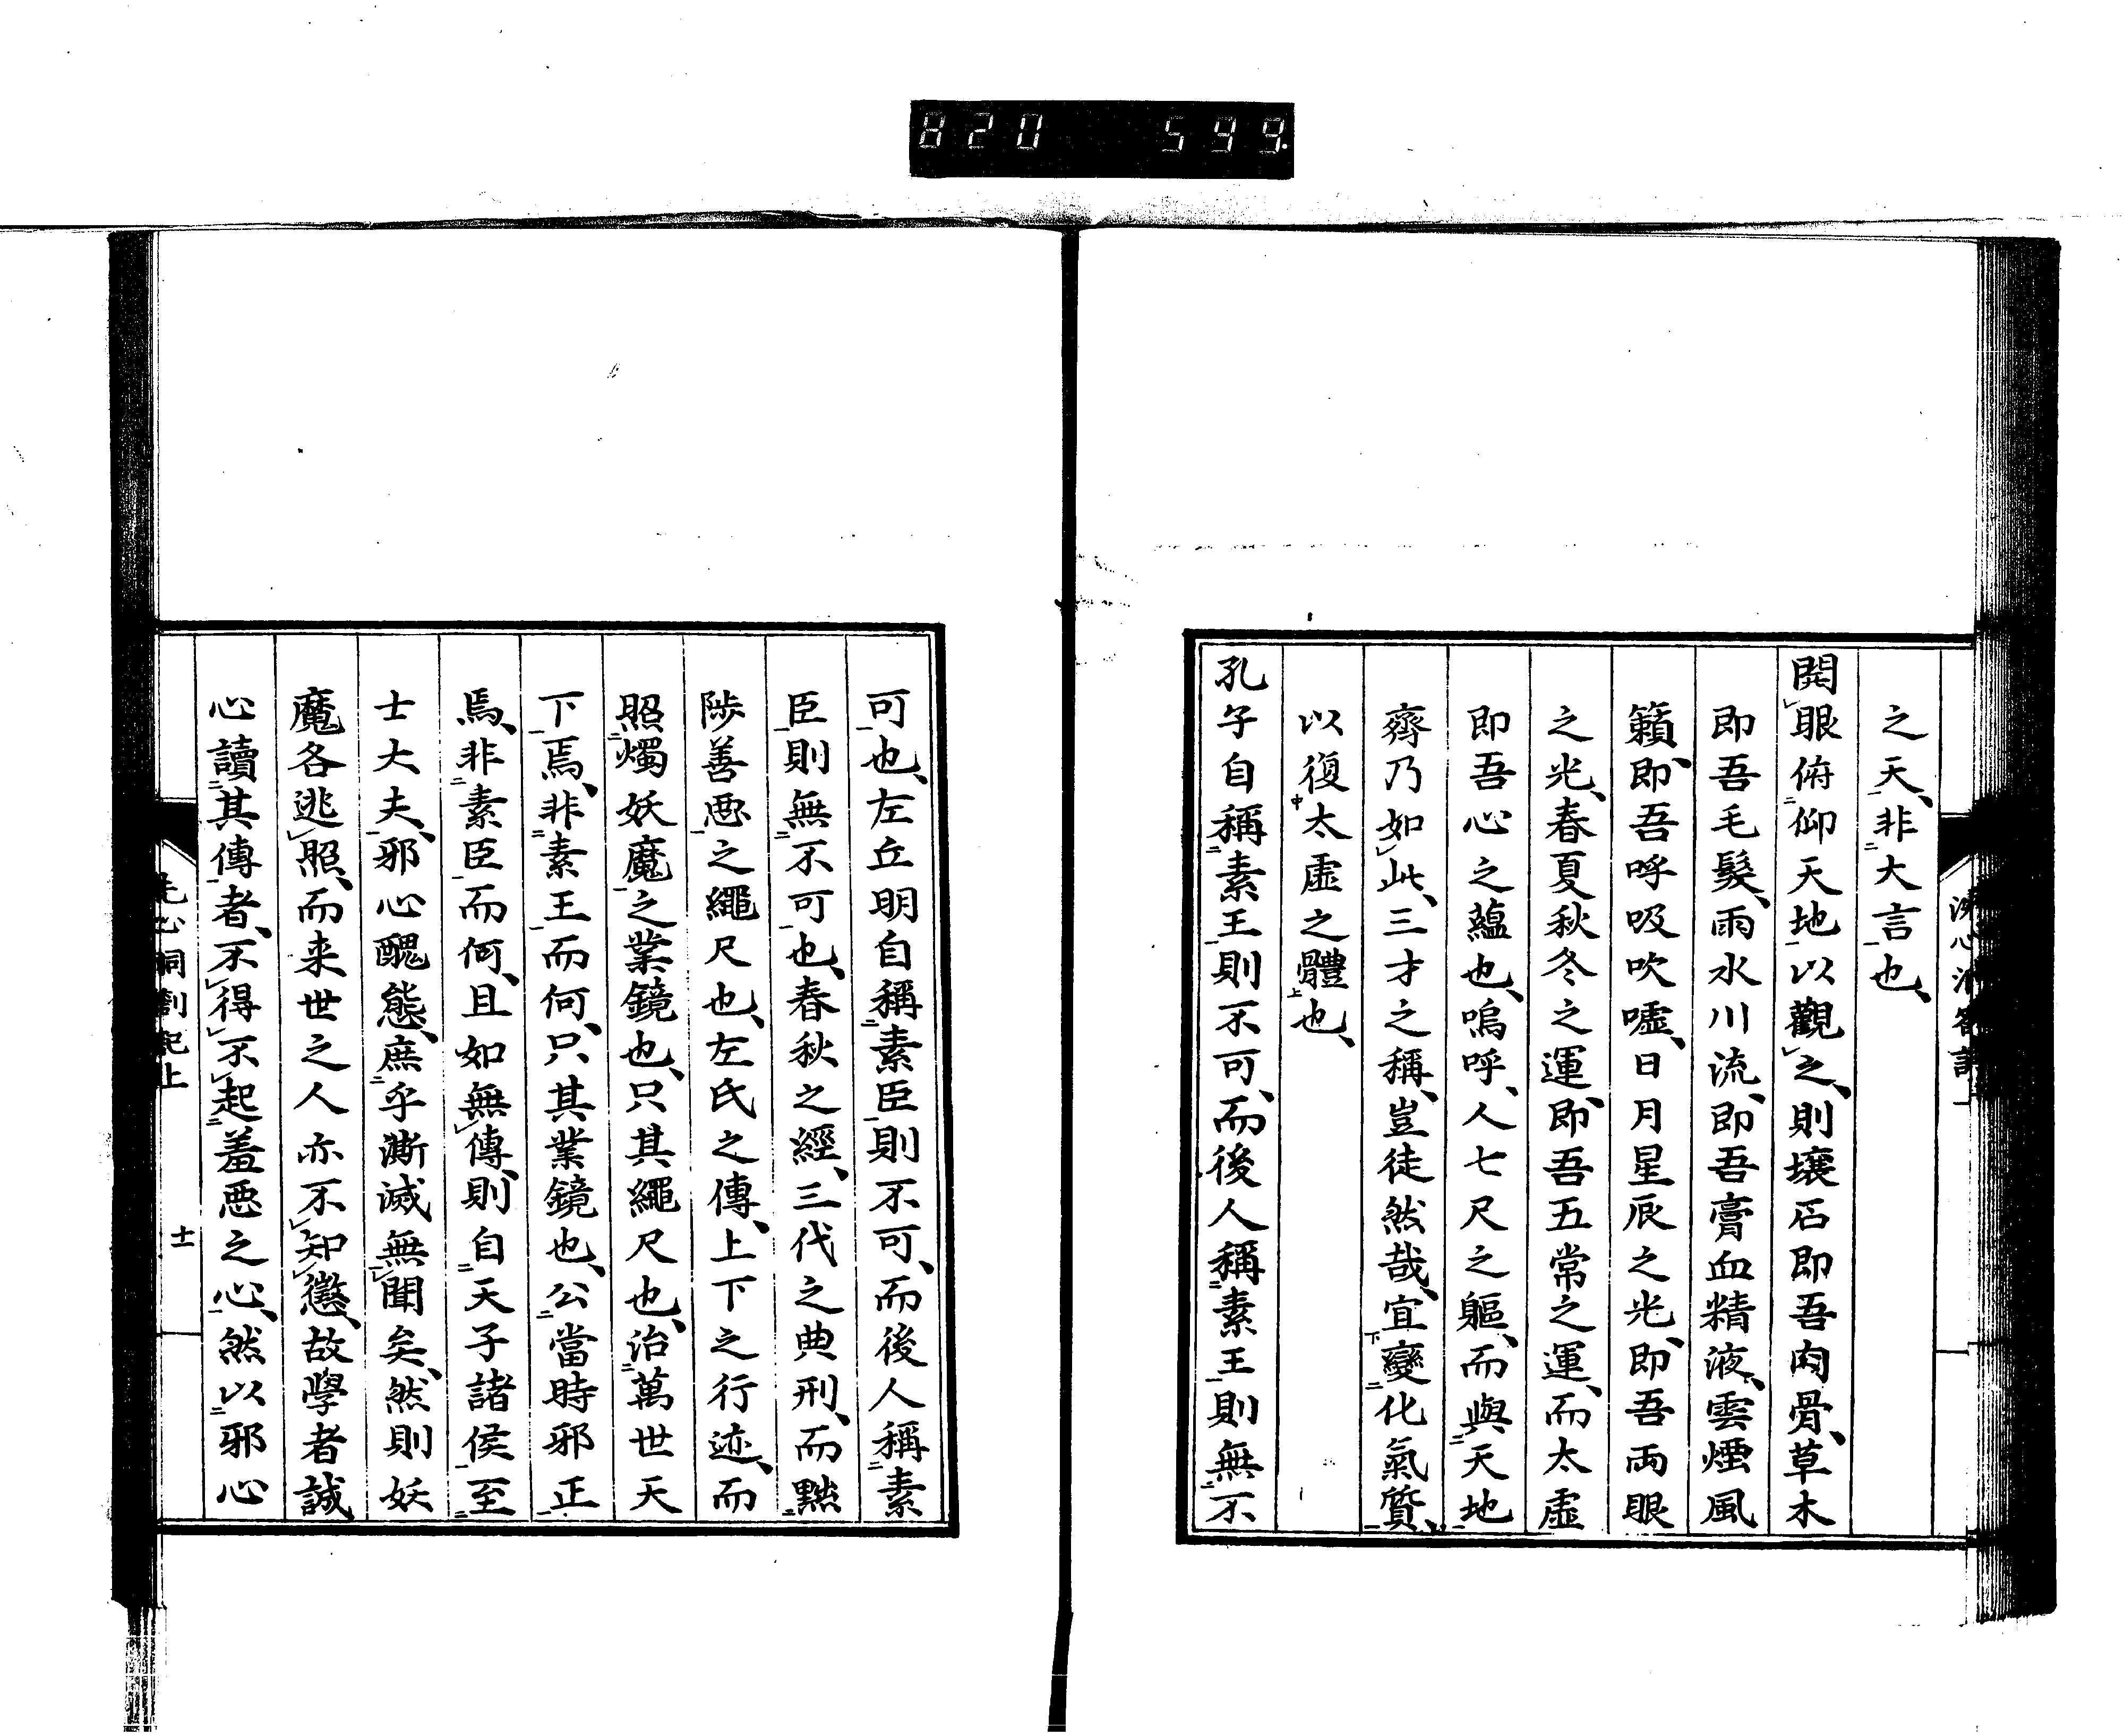 820 599
之天、非大言也、
開眼俯仰天地以觀之、則壤石即吾肉骨、草木
即吾毛髮、雨水川流、即吾膏血精液、雲煙風
籟、即吾呼吸吹噓、日月星辰之光、即吾兩眼
之光、春夏秋冬之運、即吾五常之運、而太虛
即吾心之蘊也、嗚呼、人七尺之軀、而與天地
齊乃如此、三才之稱、豈徒然哉、宜變化氣質、
以復太虛之體也、
孔子自稱素王則不可、而後人稱素王則無不
可也、左丘明自稱素臣則不可、而後人稱素
臣則無不可也、春秋之經、三代之典刑、而黜
陟善惡之繩尺也、左氏之傳、上下之行迹、而
照燭妖魔之業鏡也、只其繩尺也、治萬世天
下焉、非素王而何、只其業鏡也、公當時邪正
焉、非素臣而何、且如無傳、則自天子諸侯至
士大夫、邪心醜態、庶乎澌滅無聞矣、然則妖
魔各逃照、而来世之人亦不知懲、故學者誠
心讀其傳者、不得不起羞惡之心、然以邪心
洗心洞劄記上
十一